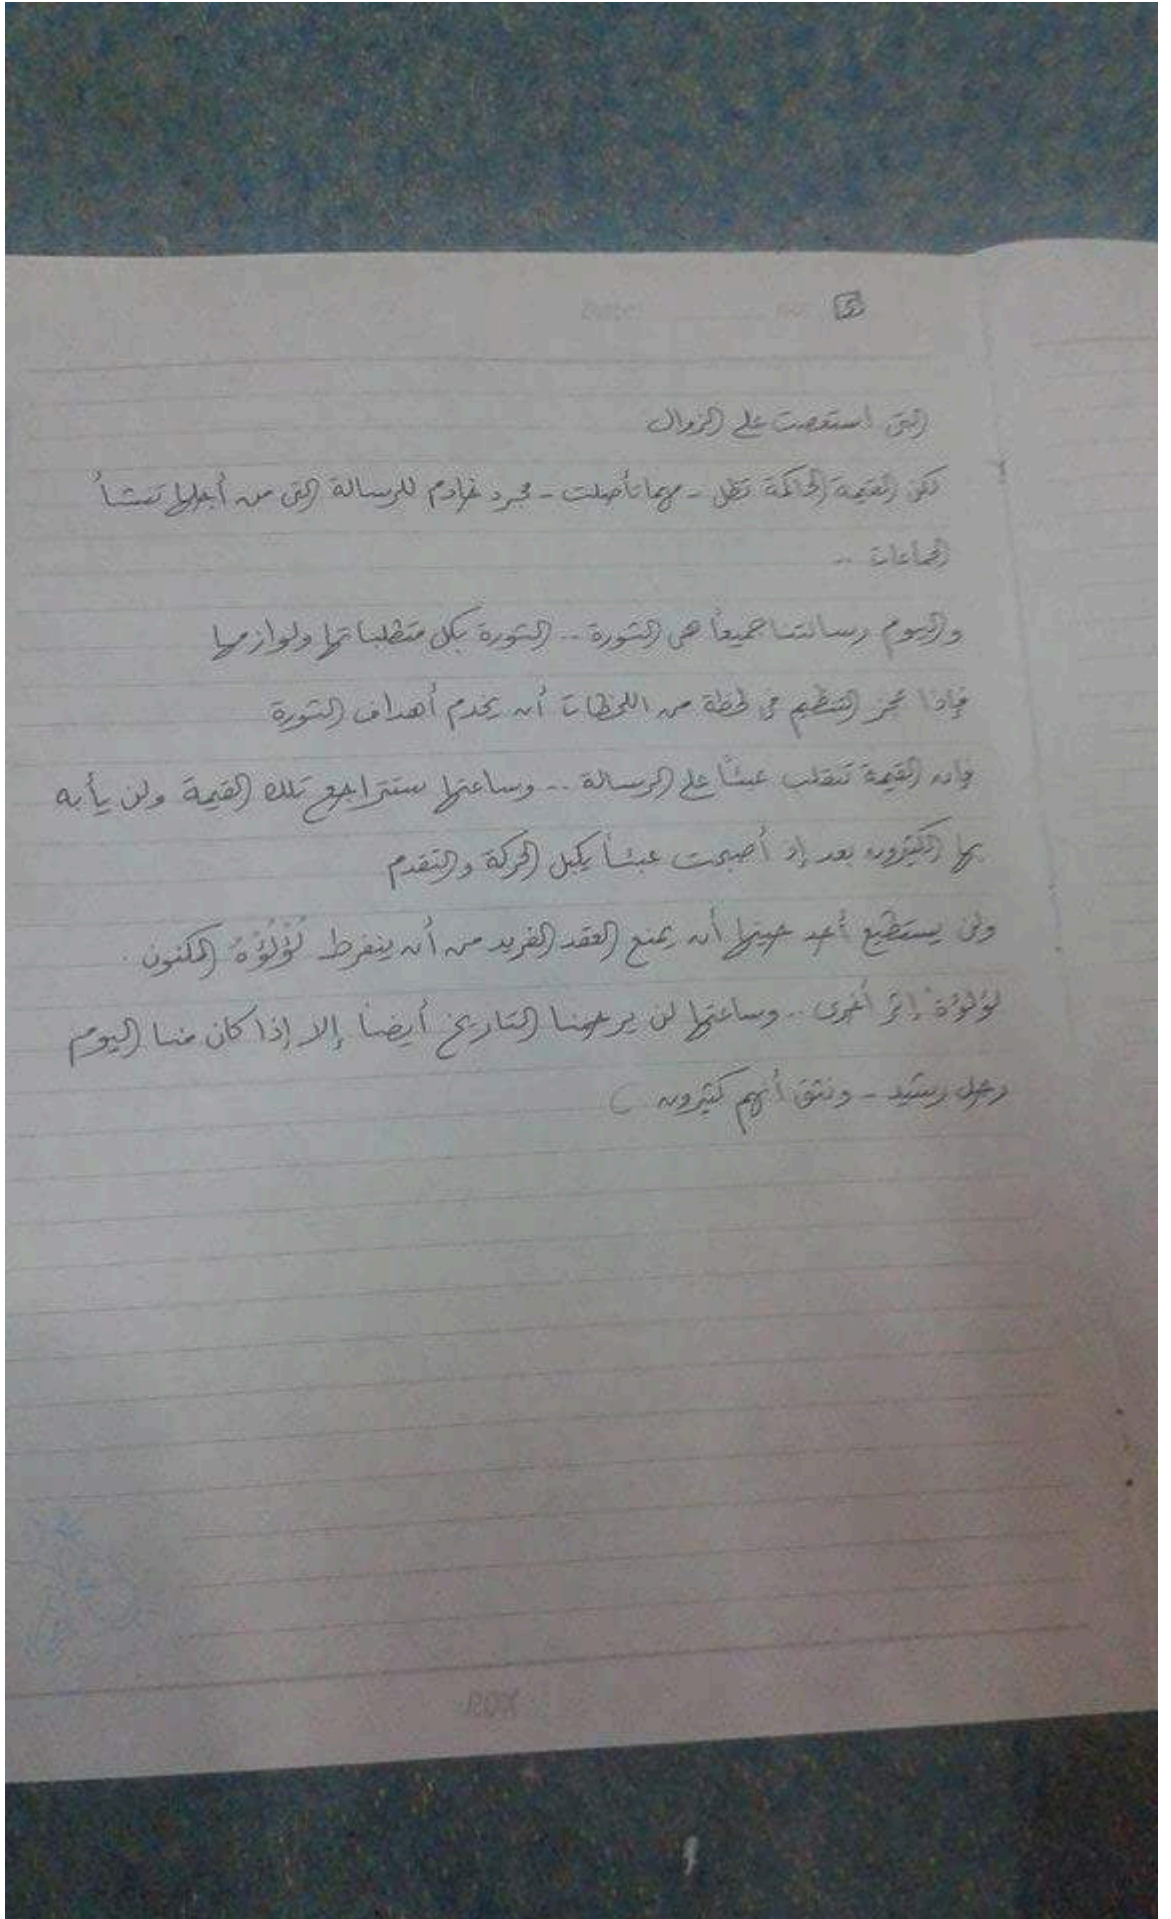 التى استعصت على الزوال
لكن القيمة الحاكمة تظل - مهما تأصلت - مجرد خادم للرسالة التى من أجلها تنشأ
الجماعات ..
واليوم رسالتنا جميعاً هى الثورة .. الثورة بكل متطلباتها ولوازمها
فإذا عجز التنظيم فى لحظة من اللحظات أن يخدم أهداف الثورة
فإن القيمة تنقلب عبئاً على الرسالة .. وساعتها ستتراجع تلك القيمة ولن يأبه
بها الكثيرون بعد إذ أصبحت عبئاً يكبل الحركة والتقدم
ولن يستطيع أحد حينها أن يمنع العقد الفريد من أن ينفرط لُؤْلُؤُهُ المكنون
لؤلؤة إثر أخرى .. وساعتها لن يرحمنا التاريخ أيضاً إلا إذا كان منا اليوم
رجل رشيد - ونثق أنهم كثيرون